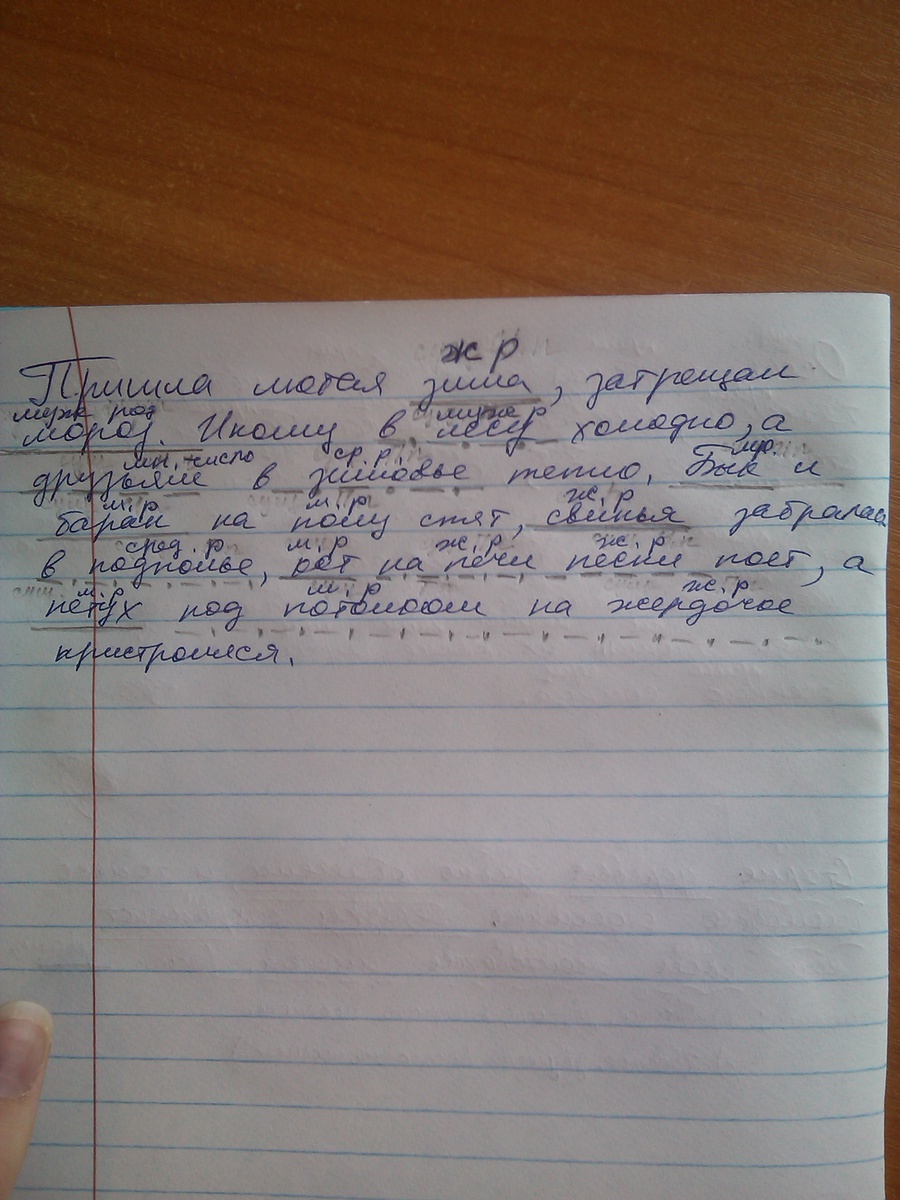 ж р
Пришла лютая зима, затрещал
муж род муж р
мороз. Иному в лесу холодно, а
мн. число ср. р. м.р.
друзьям в зимовье тепло. Бык и
м. р м. р ж. р
баран на полу спят, свинья забралась
сред. р м. р ж. р ж. р
в подполье, кот на печи песни поет, а
м. р м. р ж. р
петух под потолком на жердочке
пристроился.